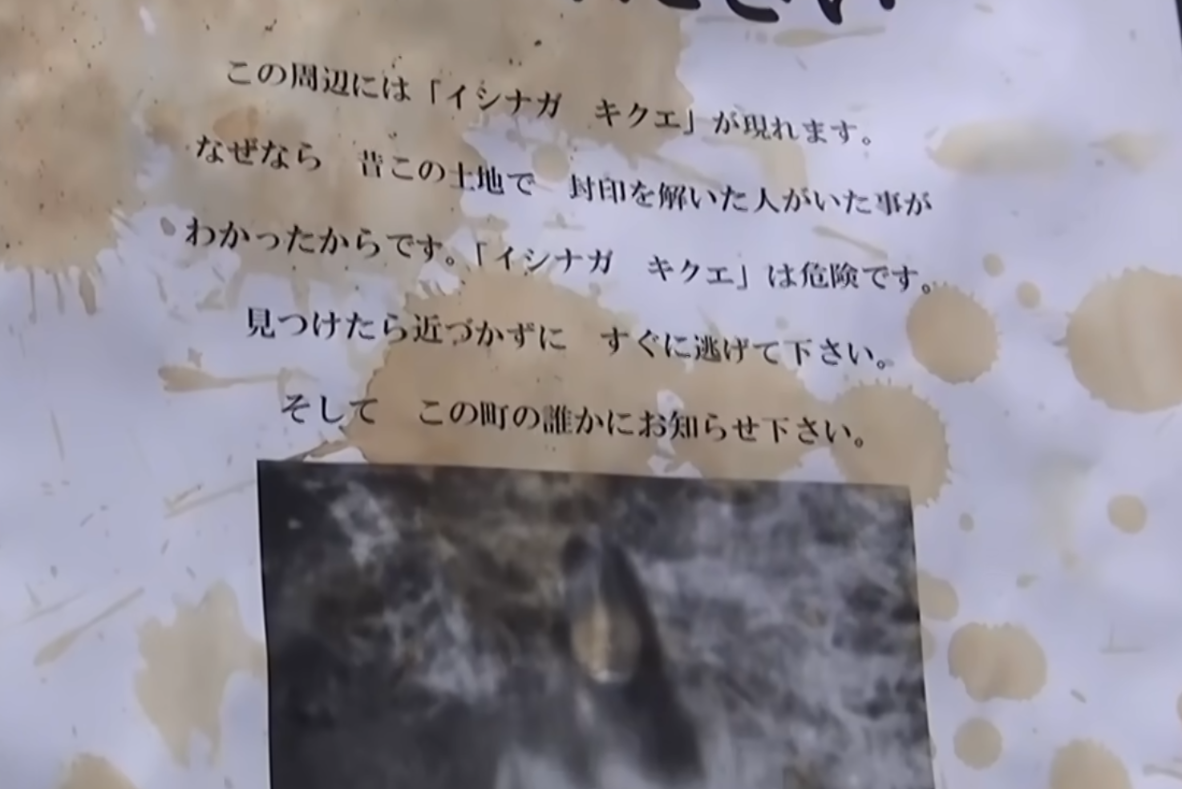 ください
この周辺には「イシナガ　キクエ」が現れます。
なぜなら　昔この土地で　封印を解いた人がいた事が
わかったからです。「イシナガ　キクエ」は危険です。
見つけたら近づかずに　すぐに逃げて下さい。
そして　この町の誰かにお知らせ下さい。